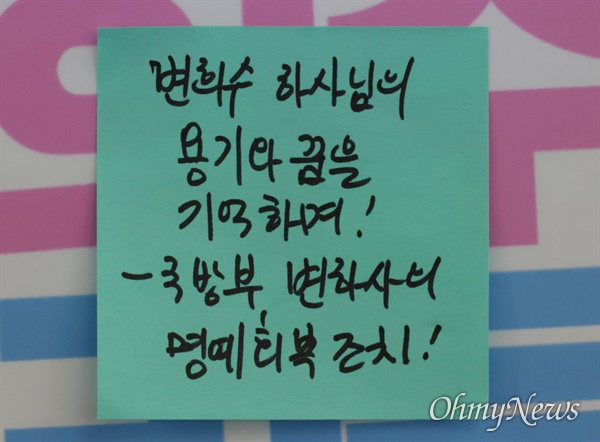 변희수 하사님의
용기와 꿈을
기억하며!
- 국방부 변하사의
명예회복 조치!
OhmyNews